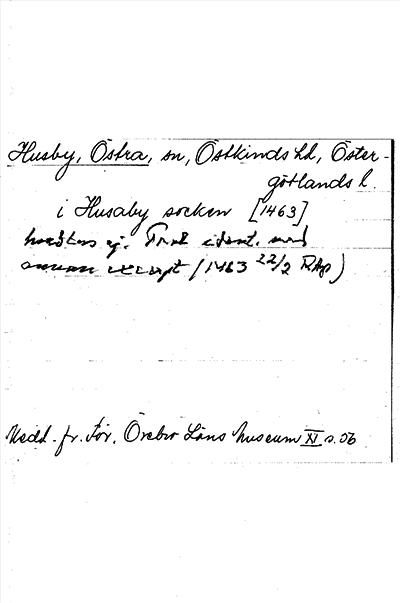 Husby, Östra, sn, Östkinds hd, Öster-
götlands l.
i Husaby socken [1463]
ej. Trol ident. med
annan excerpt (1463 22/2 RAp)
Medd. fr. För. Örebro Läns museum XI s. 56